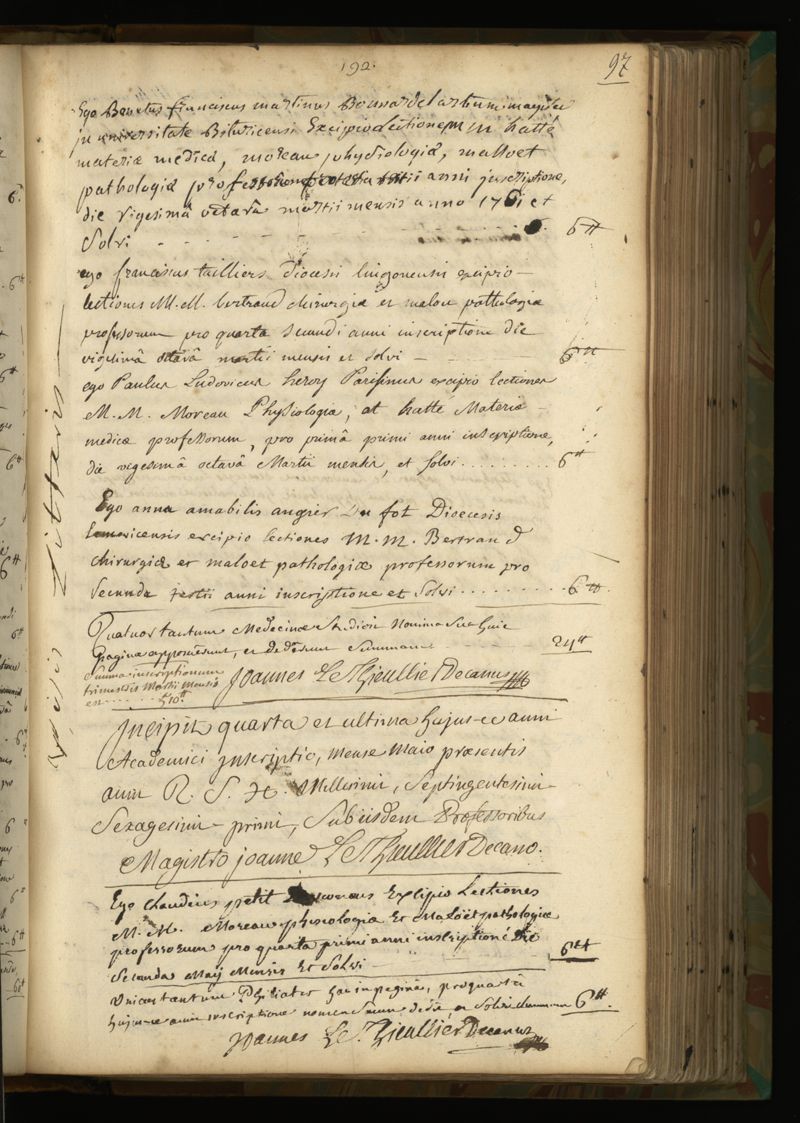 192.
97
Ego Benetus franciscus martinus Boussardel artium magister
in universitate Bituricensi Excipio Lectiones M M hatté
materiæ medicæ, moreau physiologiæ, malloet
pathologiæ professorum tertii anni inscriptione,
die vigesimâ octavâ martii mensis anno 1761 et
Solvi 6 ₶
ego franciscus tailliers Diocesis lingonensis excipio
lectiones M. M. bertrand chirurgiæ et maloet pathologiæ
professorum pro quarta secundi anni inscriptione die
vigesimâ octavâ martii mensis et solvi 6 ₶
ego Paulus Ludovicus heroy Parisinus excipio lectiones
M. M. Moreau Physiologiæ, at hatté Materiæ
medicæ professorum, pro primâ primi anni inscriptione,
die vigesimâ octavâ Martii mensis, et solvi . . . . . . . . 6 ₶
Ego anna amabilis augier Du fot Dioecesis
Lemovicensis excipio lectiones M. M. Bertrand
chirurgiæ et maloet pathologiæ professorum pro
secunda tertii anni inscriptione et solvi . . . . . . . . . . 6 ₶
Quatuor tantum Medecinæ Studiosi Nomina sua huic
Paginæ apposuerunt, et dederunt Summam 24 ₶
Summa inscriptionum
trimestris Martii Mensis
est 510 ₶
Joannes Le Thieullier Decanus
Incipit quarta et ultima hujus-ce anni
Academici Inscriptio, Mense Maio præsentis
anni R. S. H. Millesimi, Septingentesimi
Sexagesimi primi, Sub iisdem Professoribus
Magistro joanne Le Thieullier Decano.
Ego Claudius petit Excipio Lectiones
M. M. Moreau phisiologiæ Et Maloët pathologiæ
professorum pro quarta primi anni inscriptione Die
Secunda Maij Mensis Et Solvi 6 ₶
Unicus tantum Philiater hac in pagina, pro quarta
hujus-ce anni inscriptione nomen suum dedit, et Solvit summam 6 ₶.
Joannes Le Thieullier Decanus